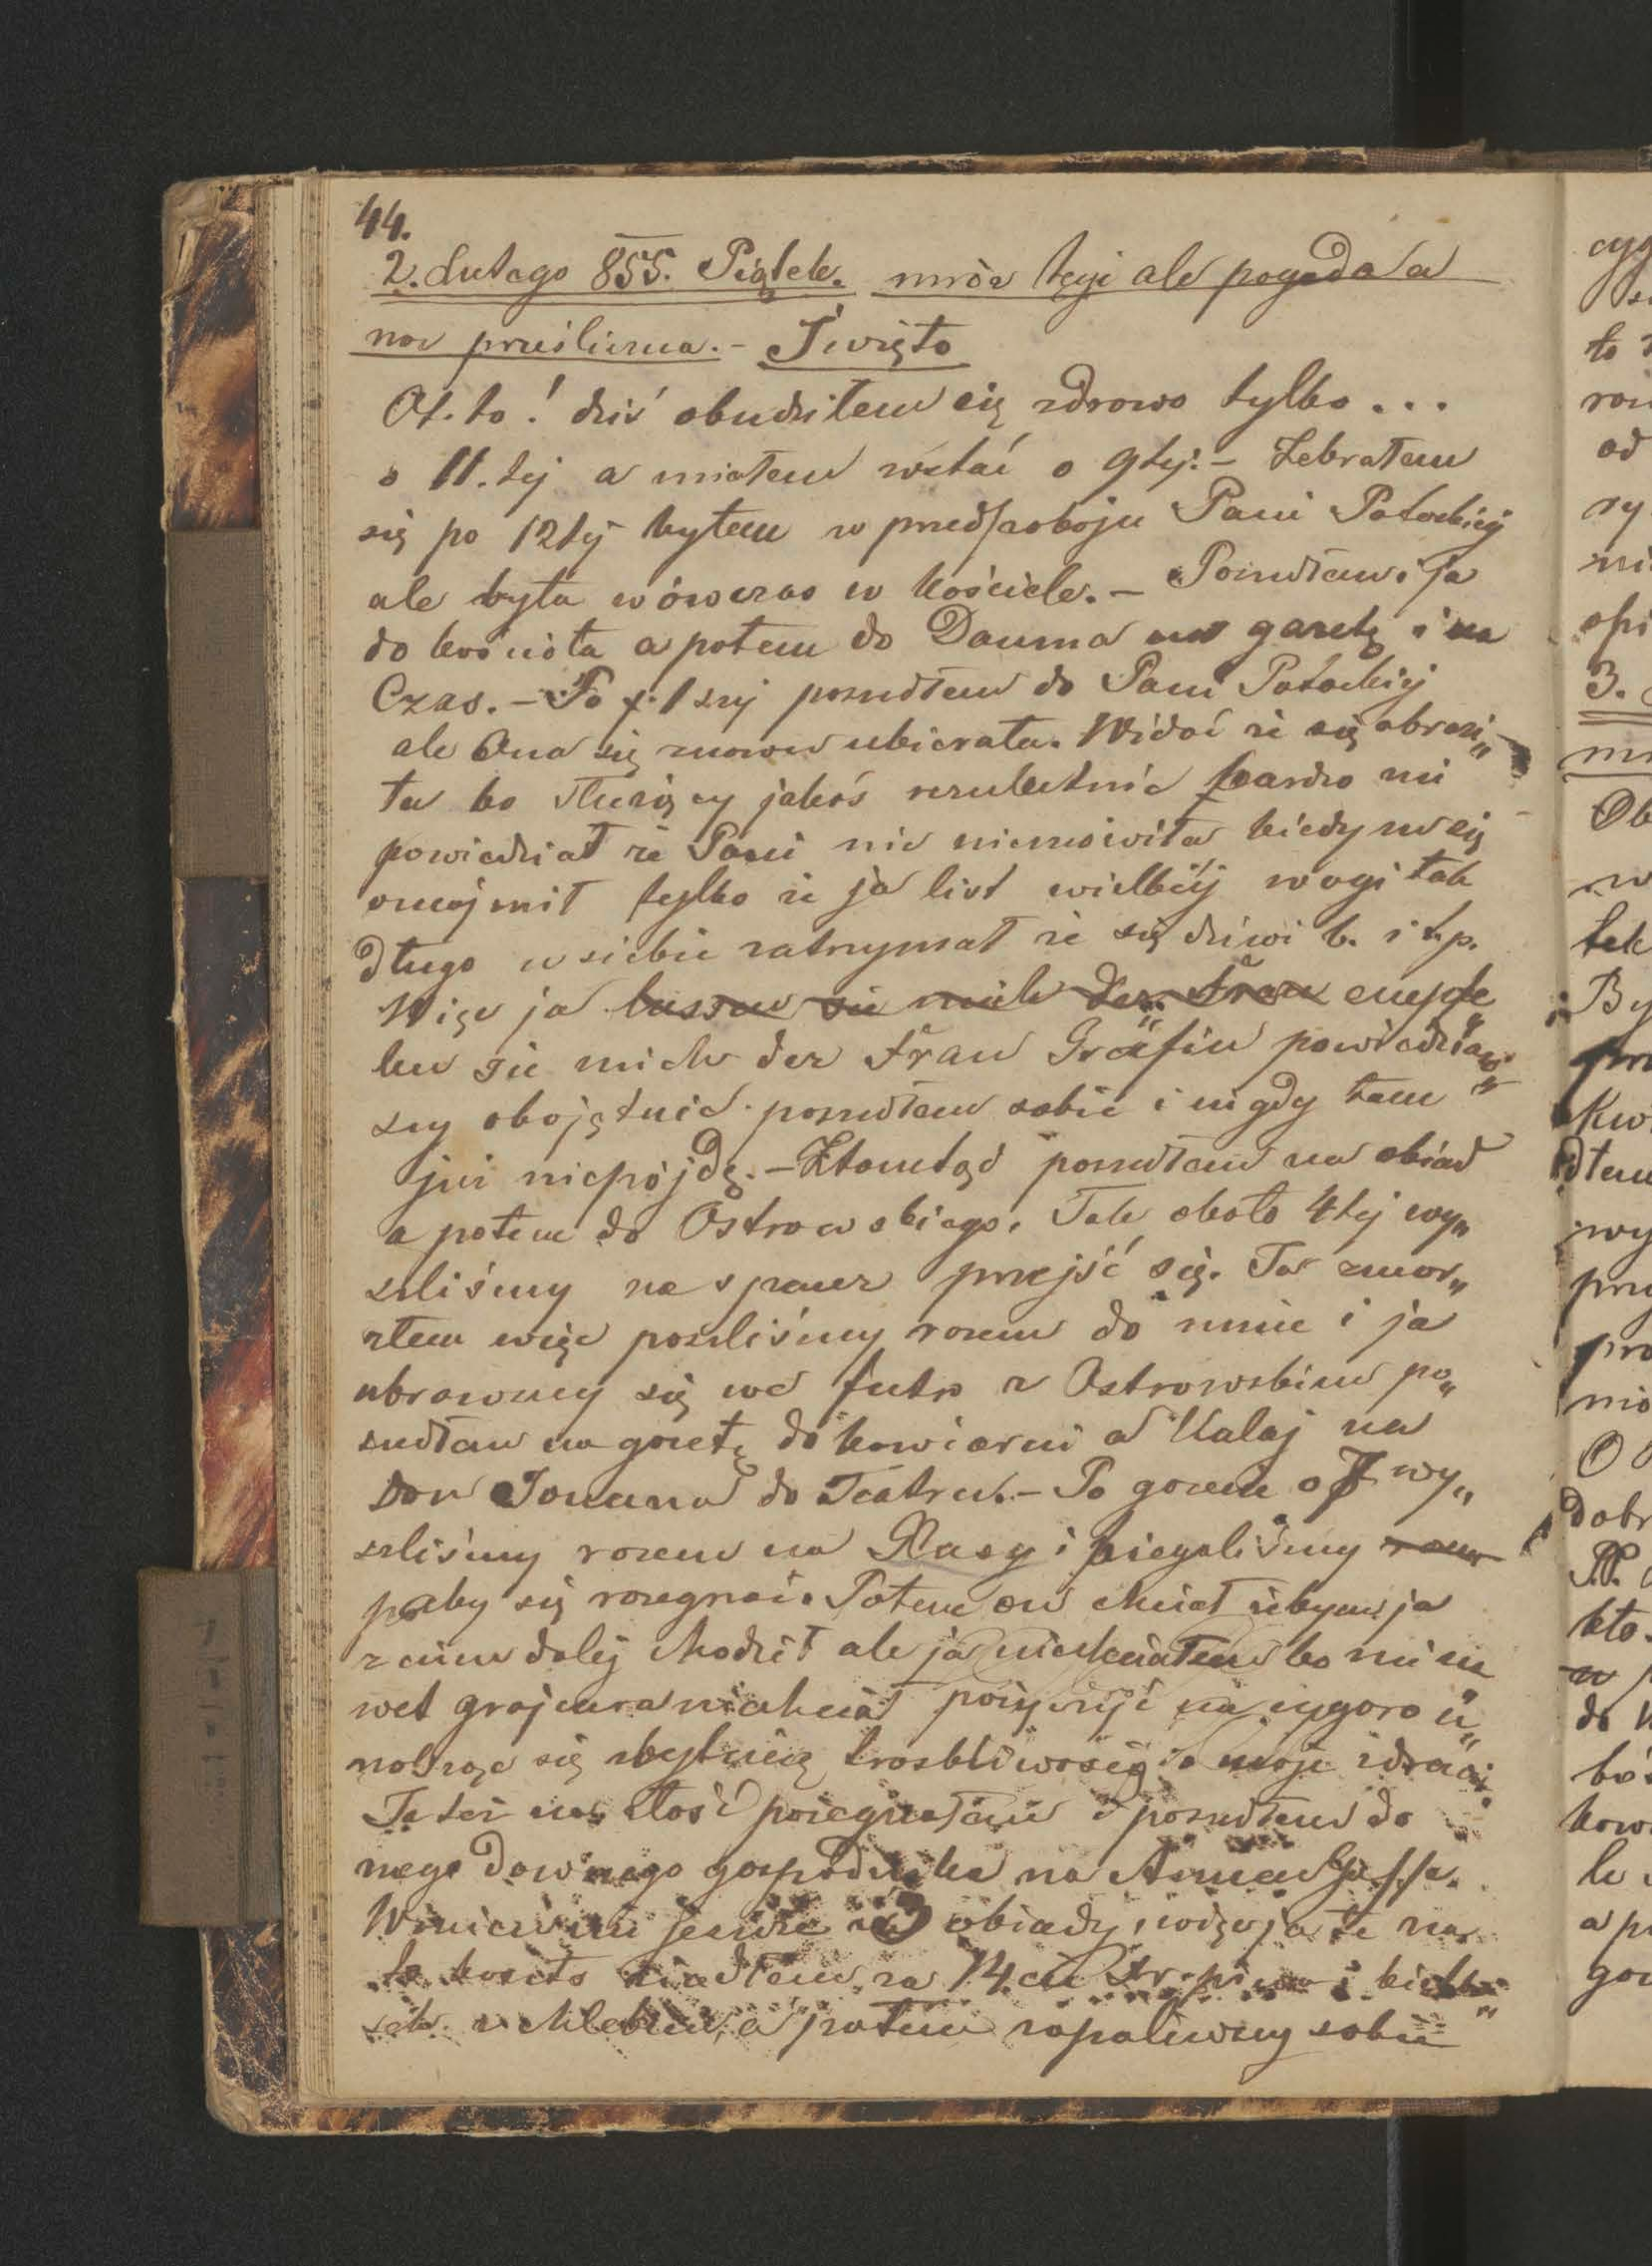 44.
2. Lutego 855. Piątek. mróz tęgi ale pogoda a
noc prześliczna. - Święto
Ot. to! dziś obudziłem się zdrowo tylko ...
o 11.tej a miałem wstać o 9tej. - Zebrałem
się po 12tej byłem w przedpokoju Pani Potockiej
ale była wówczas w kościele. - Poszedłem i ja
do kościoła a potem do Dauma na gazetę i na
Czas. - Po 1szej poszedłem do Pani Potockiej
ale Ona się znowu ubierała. Widać że się obrazi„
ła bo służący jakoś rezolutnie bardzo mi
powiedział że Pani nic niemówiła kiedym się
oznajmił tylko że ja list wielkiej wagi tak
długo u siebie zatrzymał że się dziwi b. i t.p.
Więc ja lassen sie mich der Frau empfe„
len sie mich der Frau Gräfin powiedziaw„
szy obojętnie poszedłem sobie i nigdy tam
już niepójdę. - Ztamtąd poszedłem na obiad
a potem do Ostrowskiego. Tak około 4tej wy„
szliśmy na spacer przejść się. Ja zmar„
złem więc poszliśmy razem do mnie i ja
ubrawszy się we futro z Ostrowskim po„
szedłem na gazetę do kawiarni a Kalaj na
Don Jouana do Teatru. - Po gazecie o 7 wy„
szliśmy razem na Rasy i biegaliśmy razem
żeby się rozegnać. Potem on chciał żebym ja
z nim dalej chodził ale ja niechciałem bo mi na
wet grajcara niechciał pożyczyć na cygaro u„
nosząc się zbytnią troskliwością o moje zdrowie.
Ja też na złość pożegnałem i poszedłem do
mego dawnego gospodaka na Annen Gasse.
Winien mi jeszcze za 3 obiady, więc ja też na
to konto zjadłem za 14. cu Kr. piwa i kieł„
sek z chlebem, a potem zapaliwszy sobie